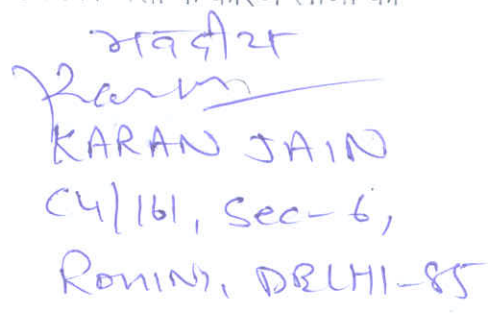 भवदीय
Karan
KARAN JAIN
C4/161, Sec-6,
ROHINI, DELHI-85